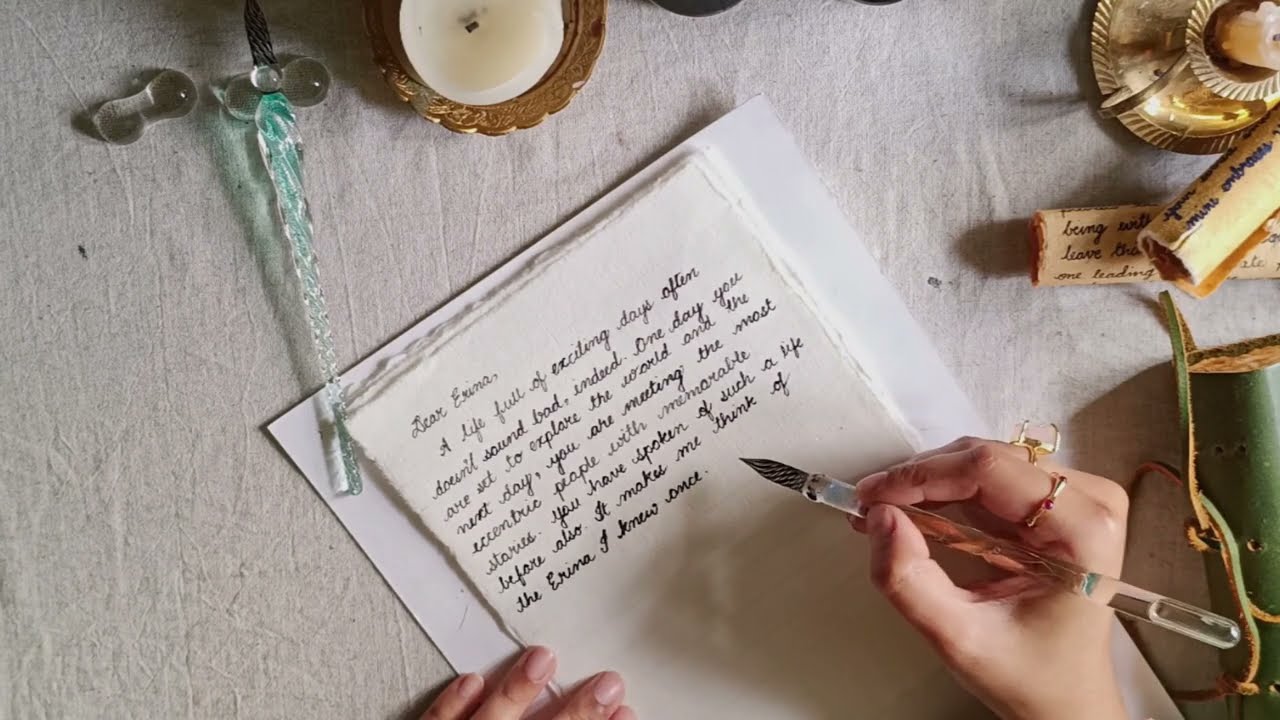 Dear Erina,
A life full of exciting days often
doesn't sound bad, indeed. One day you
are set to explore the world and the
next day, you are meeting the most
eccentric people with memorable
stories. You have spoken of such a life
before also. It makes me think of
the Erina I knew once.
your
mine embrace
being with
leave tha
one leading